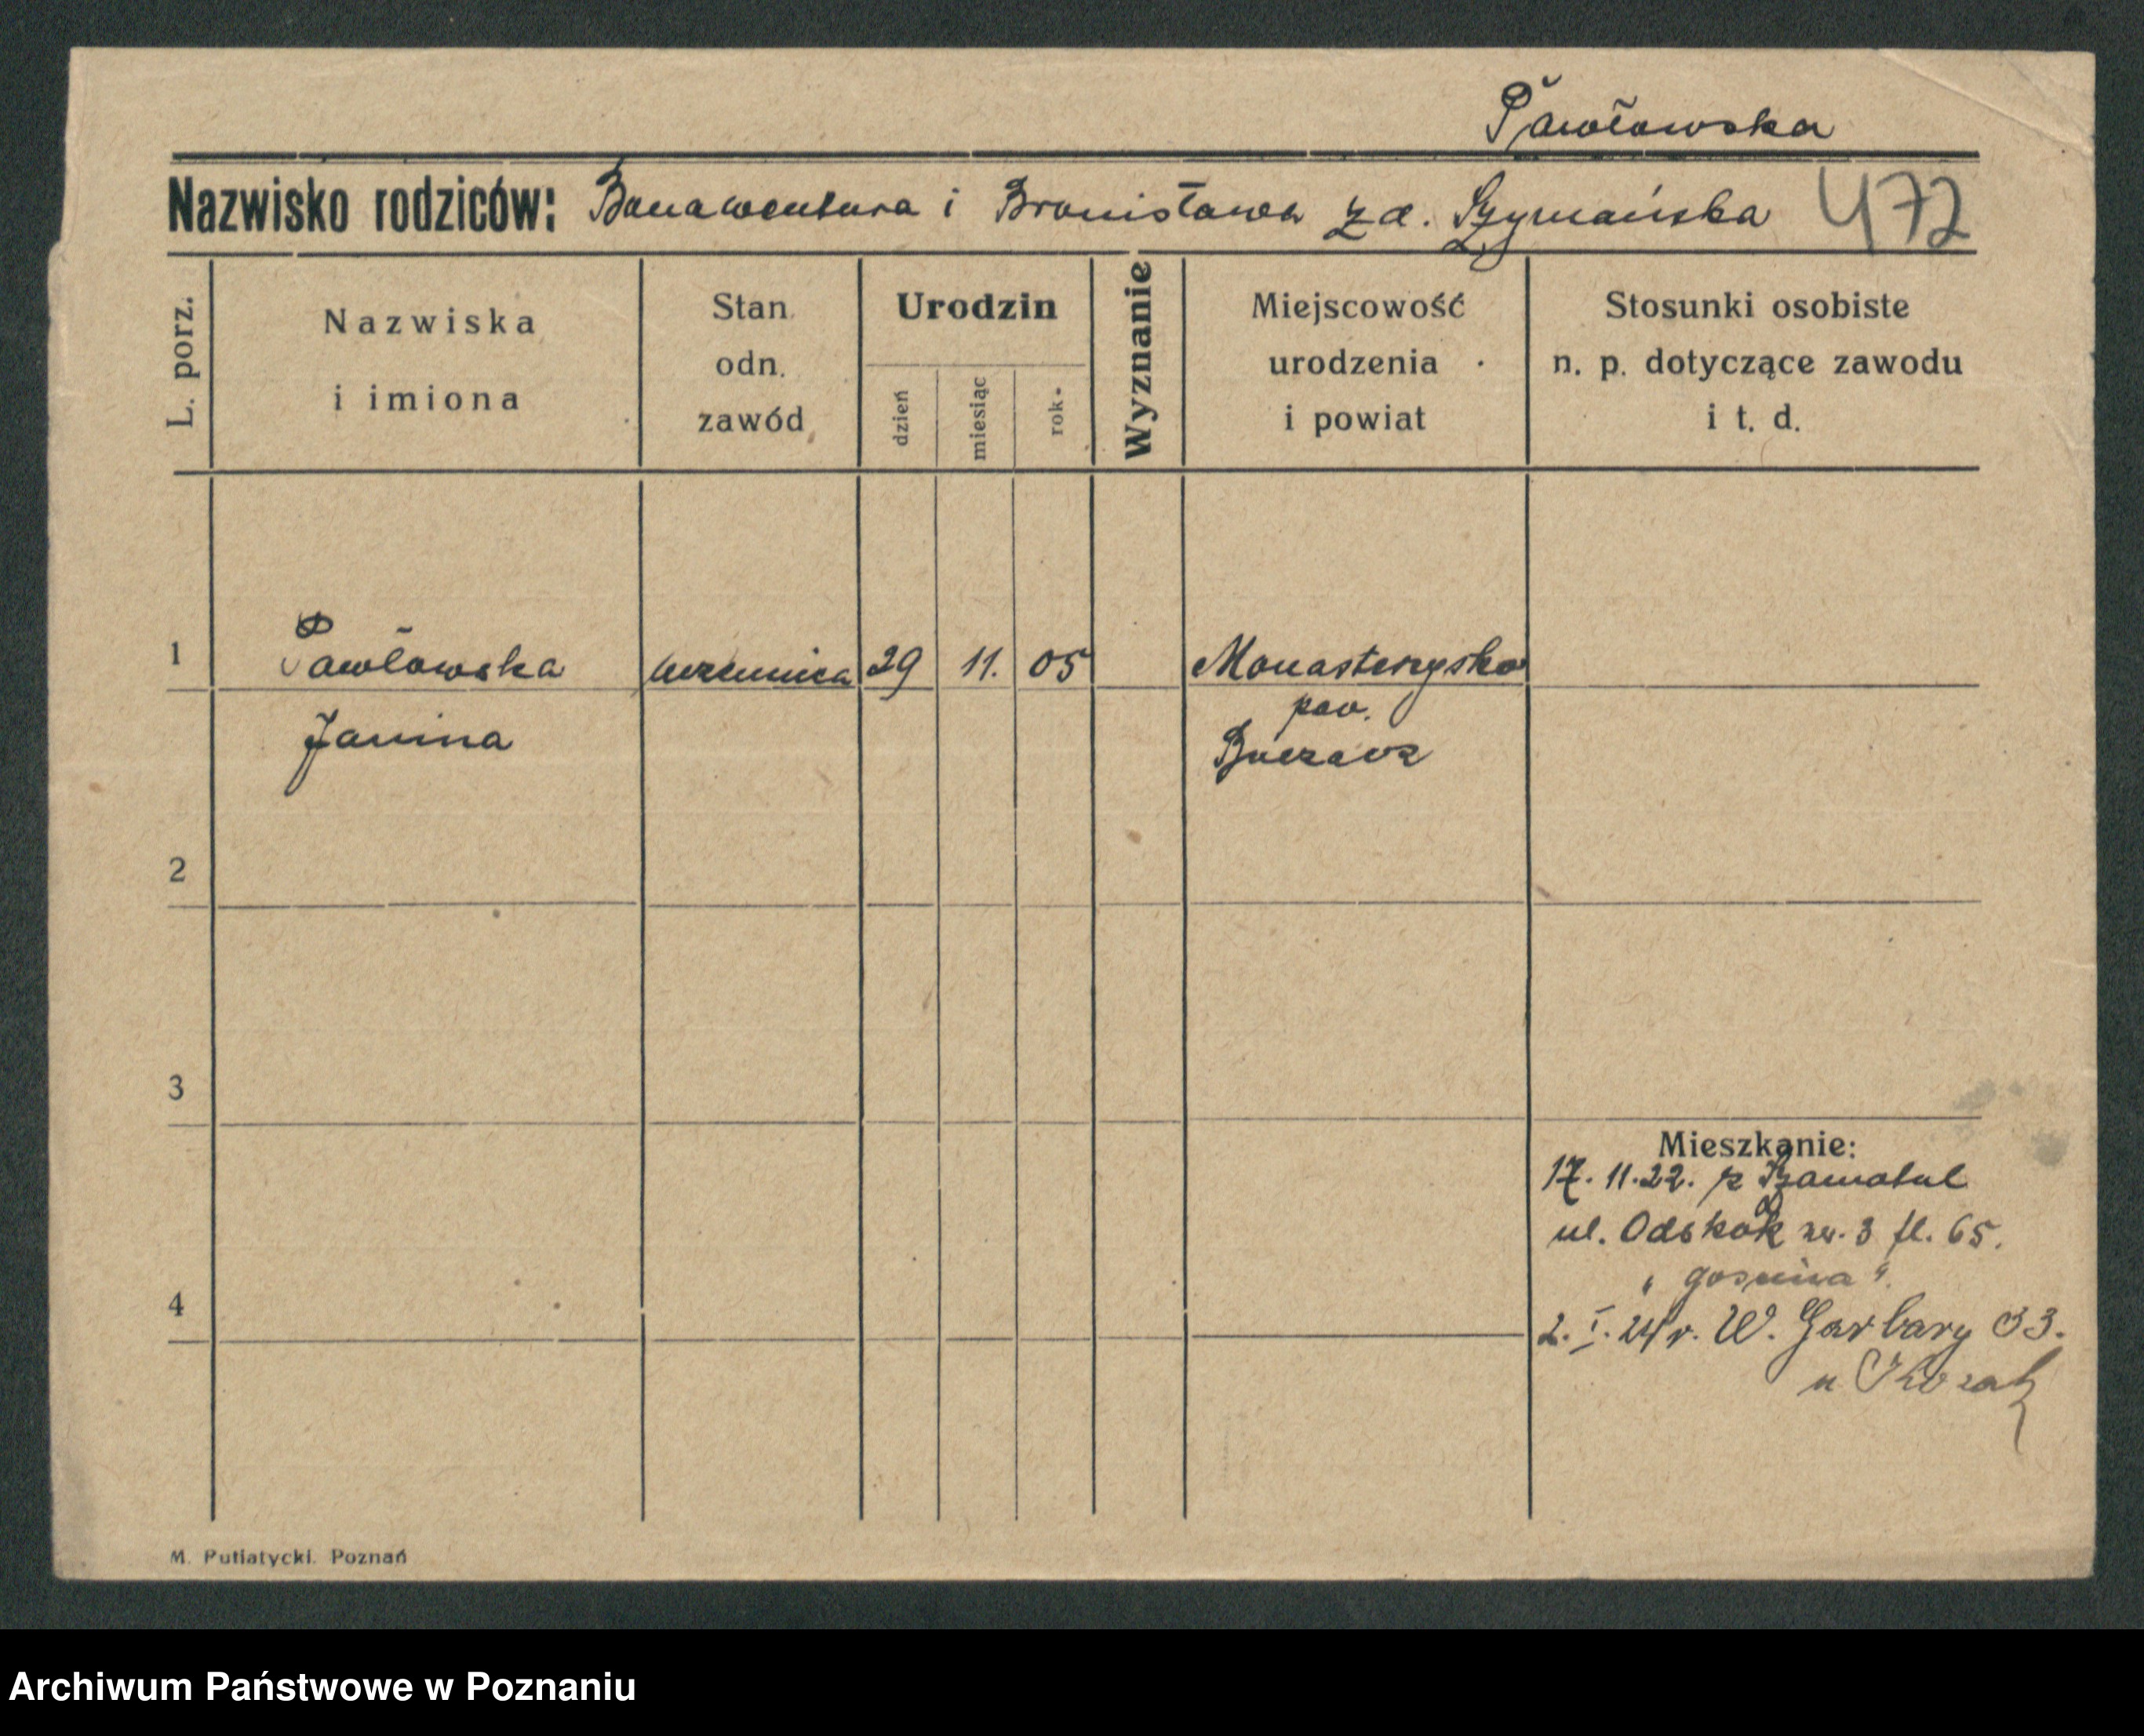 Pawłowska
Nazwisko rodziców: Bonawentura i Bronisława z d. Szymańska 472
L. porz.
Nazwiska
i imiona
Stan
odn.
zawód
Urodzin
dzień
miesiąc
rok
Wyznanie
Miejscowość
urodzenia
i powiat
Stosunki osobiste
n. p. dotyczące zawodu
i t. d.
1 Pawłowska uczennica 29 11. 05 Monasterzyska
Janina pow.
Buczacz
2
3
4
Mieszkanie:
17. 11. 22. z Szamotul
ul. Odskok nr. 3 fl. 65.
2. I. 24 r. W. Garbary 33.
u Kozak
M. Putiatycki. Poznań
Archiwum Państwowe w Poznaniu